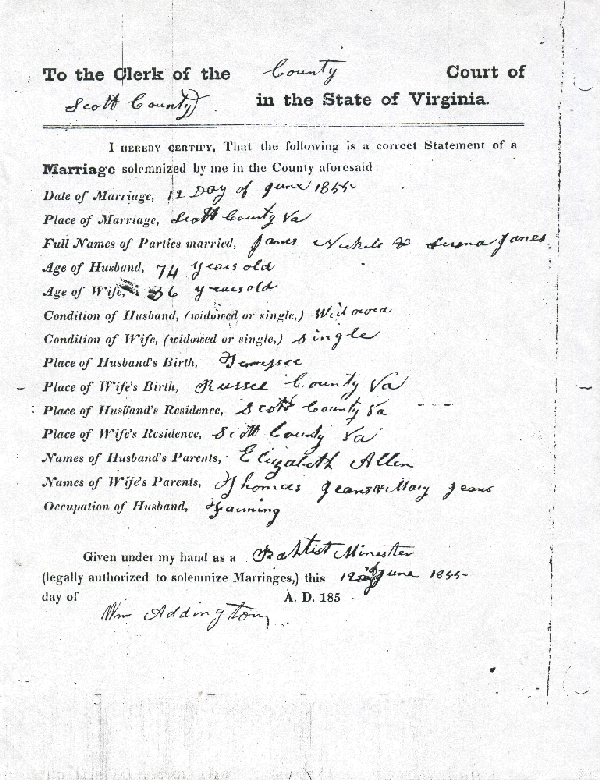 To the Clerk of the County Court of
Scott County in the State of Virginia.
I HEREBY CERTIFY, That the following is a correct Statement of a
Marriage solemnized by me in the County aforesaid
Date of Marriage, 12 Day of June 1855
Place of Marriage, Scott County Va
Full Names of Parties married, James Nickels & Jones
Age of Husband, 74 years old
Age of Wife, 36 years old
Condition of Husband, (widowed or single,) Widowed
Condition of Wife, (widowed or single,) Single
Place of Husband's Birth,
Place of Wife's Birth, Russel County Va
Place of Husband's Residence, Scott County Va
Place of Wife's Residence, Scott County Va
Names of Husband's Parents, Elizabeth Allen
Names of Wife's Parents, Thomas Jeans & Mary Jeans
Occupation of Husband, Farming
Given under my hand as a Baptist Minester
(legally authorized to solemnize Marriages,) this 12 of June 1855
day of A. D. 185
Wm Addington